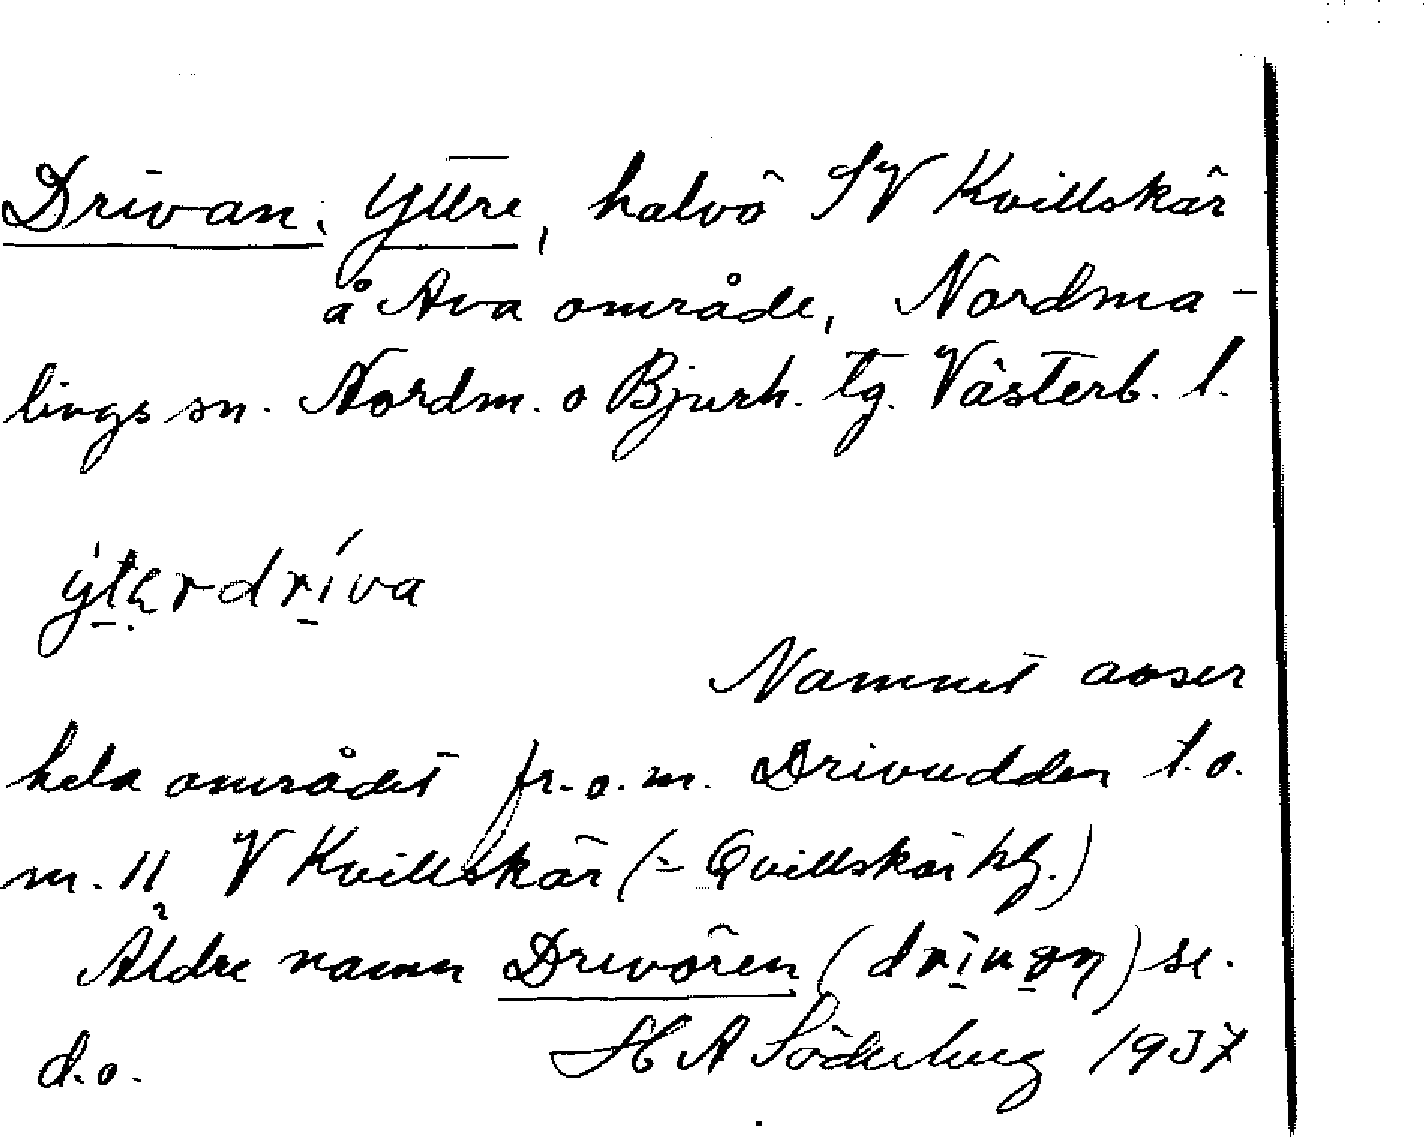 Drivan, Yttre, halvö SV Kvillskär
å Ava område, Nordma-
lings sn. Nordm. o Bjurh. tg. Västerb. l.
ýterdríva
Namnet avser
hela området fr.o.m. Drivudden t.o.
m. 11 V Kvillskär (= Qvillskär hlg.)
Äldre namn Drivören (driuøṇ) se.
d.o. H A Söderberg 1937